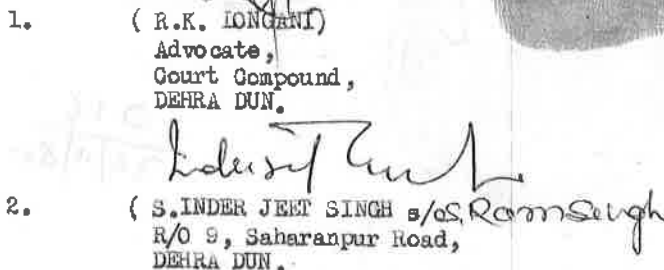 1. ( R.K. LONGANI)
Advocate,
Court Compound,
DEHRA DUN.
2. ( S.INDER JEET SINGH s/o S. Ram Singh
R/O 9, Saharanpur Road,
DEHRA DUN.